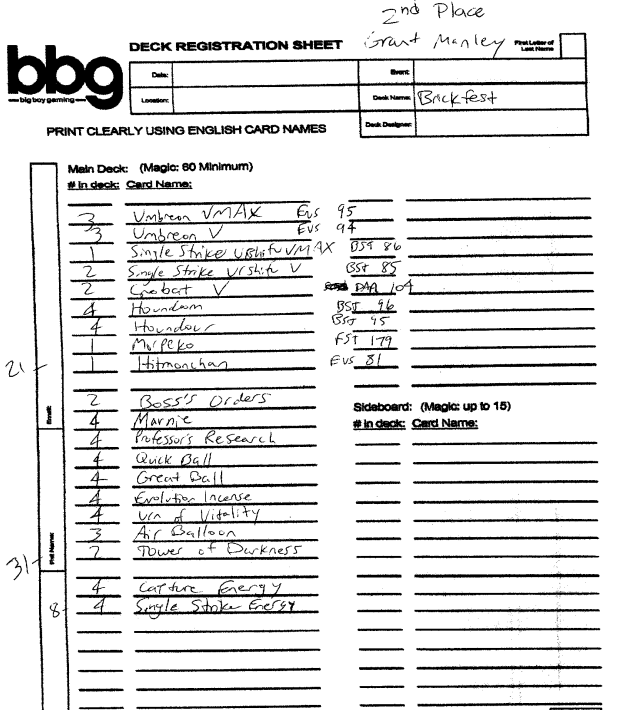 2nd Place
Grant Manley
DECK REGISTRATION SHEET
First Letter of Last Name
bbg
big boy gaming
Date:
Event:
Location:
Deck Name: Brickfest
Deck Designer:
PRINT CLEARLY USING ENGLISH CARD NAMES
Main Deck: (Magic: 60 Minimum)
# in deck: Card Name:
3 Umbreon VMAX EVS 95
3 Umbreon V EVS 94
1 Single Strike Urshifu VMAX BST 86
2 Single Strike Urshifu V BST 85
2 Crobat V DAA 104
4 Houndoom BST 96
4 Houndour BST 95
1 Morpeko FST 179
1 Hitmonchan EVS 81
21
2 Boss's Orders
4 Marnie
4 Professor's Research
4 Quick Ball
4 Great Ball
4 Evolution Incense
4 Urn of Vitality
3 Air Balloon
2 Tower of Darkness
31
4 Capture Energy
4 Single Strike Energy
8
Email:
Sideboard: (Magic: up to 15)
# in deck: Card Name: